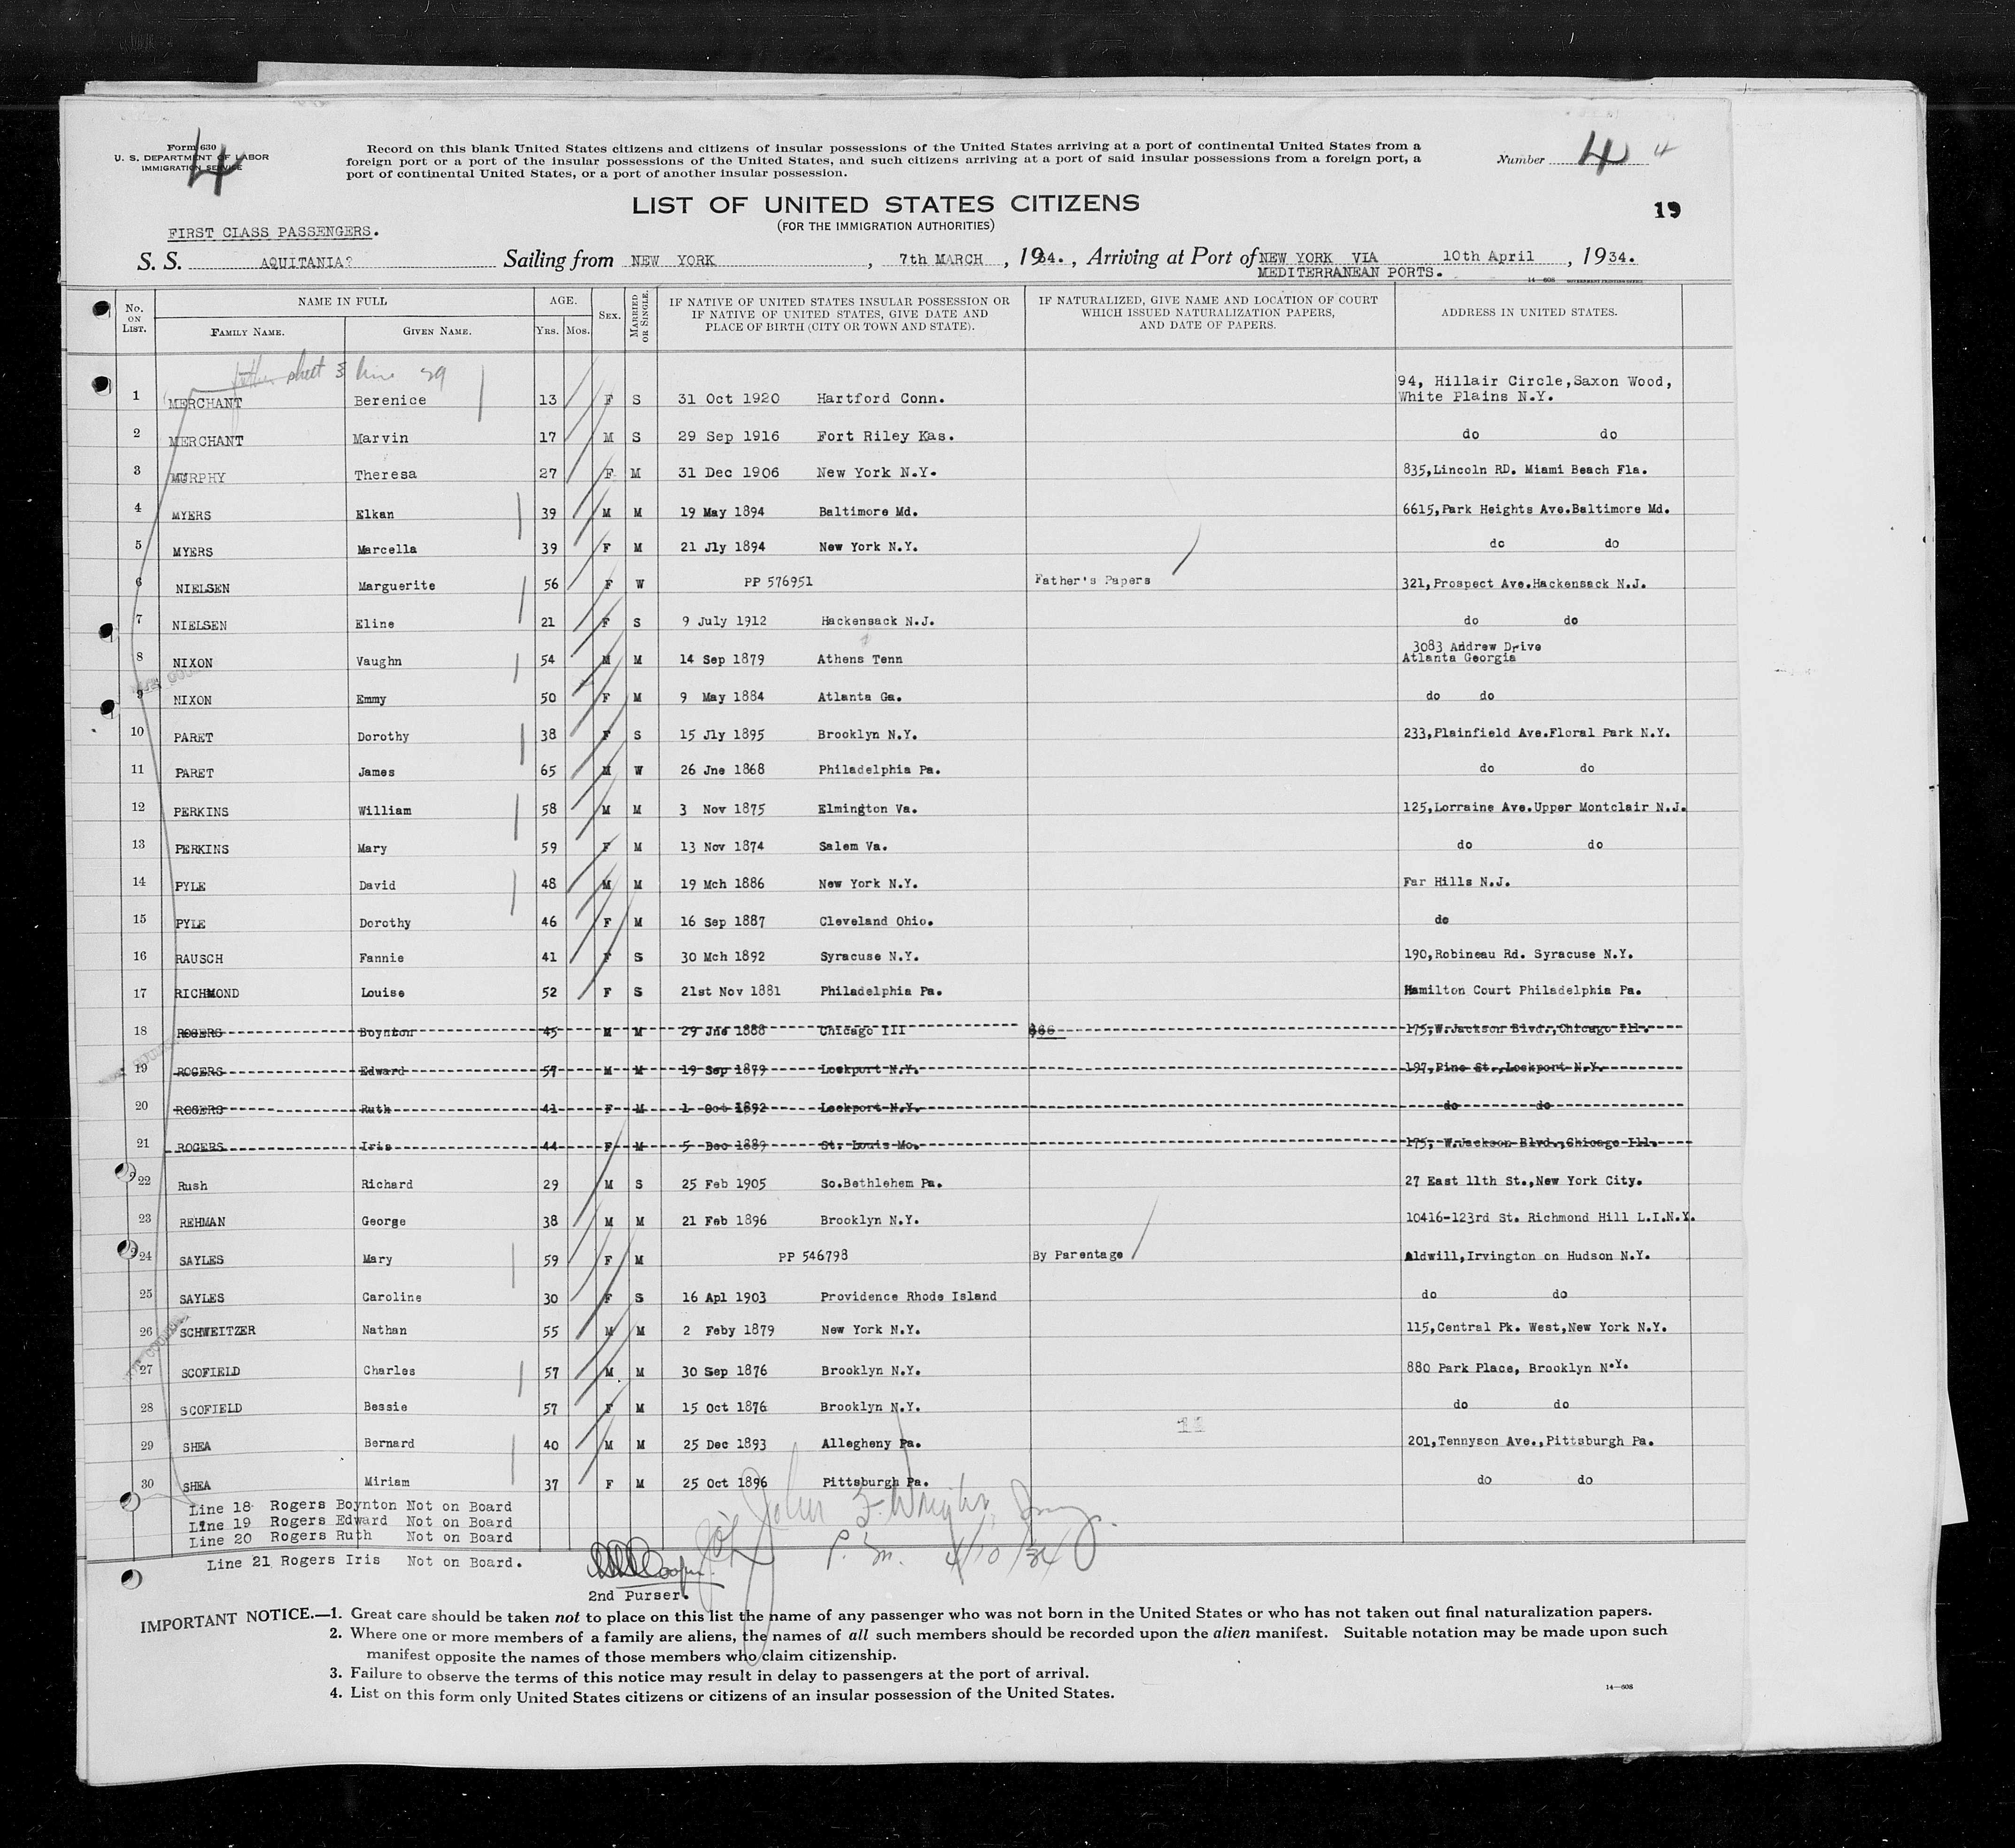 Form 630
U. S. DEPARTMENT OF LABOR
IMMIGRATION SERVICE
4
Record on this blank United States citizens and citizens of insular possessions of the United States arriving at a port of continental United States from a
foreign port or a port of the insular possessions of the United States, and such citizens arriving at a port of said insular possessions from a foreign port, a
port of continental United States, or a port of another insular possession.
Number 4 4
LIST OF UNITED STATES CITIZENS
(FOR THE IMMIGRATION AUTHORITIES)
19
FIRST CLASS PASSENGERS.
S. S. AQUITANIA? Sailing from NEW YORK , 7th MARCH , 1934. , Arriving at Port of NEW YORK VIA 10th April , 1934.
MEDITERRANEAN PORTS.
14—608 GOVERNMENT PRINTING OFFICE
No. ON LIST. NAME IN FULL FAMILY NAME. GIVEN NAME. AGE. YRS. MOS. SEX. MARRIED OR SINGLE. IF NATIVE OF UNITED STATES INSULAR POSSESSION OR IF NATIVE OF UNITED STATES, GIVE DATE AND PLACE OF BIRTH (CITY OR TOWN AND STATE). IF NATURALIZED, GIVE NAME AND LOCATION OF COURT WHICH ISSUED NATURALIZATION PAPERS, AND DATE OF PAPERS. ADDRESS IN UNITED STATES.
father sheet 3 line 29
1 MERCHANT Berenice 13 F S 31 Oct 1920 Hartford Conn. 94, Hillair Circle,Saxon Wood, White Plains N.Y.
2 MERCHANT Marvin 17 M S 29 Sep 1916 Fort Riley Kas. do do
3 MURPHY Theresa 27 F M 31 Dec 1906 New York N.Y. 835,Lincoln RD. Miami Beach Fla.
4 MYERS Elkan 39 M M 19 May 1894 Baltimore Md. 6615,Park Heights Ave.Baltimore Md.
5 MYERS Marcella 39 F M 21 Jly 1894 New York N.Y. do do
6 NIELSEN Marguerite 56 F W PP 576951 Father's Papers 321,Prospect Ave.Hackensack N.J.
7 NIELSEN Eline 21 F S 9 July 1912 Hackensack N.J. do do
8 NIXON Vaughn 54 M M 14 Sep 1879 Athens Tenn 3083 Andrew Drive Atlanta Georgia
9 NIXON Emmy 50 F M 9 May 1884 Atlanta Ga. do do
10 PARET Dorothy 38 F S 15 Jly 1895 Brooklyn N.Y. 233,Plainfield Ave.Floral Park N.Y.
11 PARET James 65 M W 26 Jne 1868 Philadelphia Pa. do do
12 PERKINS William 58 M M 3 Nov 1875 Elmington Va. 125,Lorraine Ave.Upper Montclair N.J.
13 PERKINS Mary 59 F M 13 Nov 1874 Salem Va. do do
14 PYLE David 48 M M 19 Mch 1886 New York N.Y. Far Hills N.J.
15 PYLE Dorothy 46 F M 16 Sep 1887 Cleveland Ohio. do
16 RAUSCH Fannie 41 F S 30 Mch 1892 Syracuse N.Y. 190,Robineau Rd. Syracuse N.Y.
17 RICHMOND Louise 52 F S 21st Nov 1881 Philadelphia Pa. Hamilton Court Philadelphia Pa.
18 ROGERS Boynton 45 M M 29 Jne 1888 Chicago III 175,W.Jackson Blvd.,Chicago Ill.
19 ROGERS Edward 57 M M 19 Sep 1879 Lockport N.Y. 197,Pine St.,Lockport N.Y.
20 ROGERS Ruth 41 F M 1 Oct 1892 Lockport N.Y. do do
21 ROGERS Iris 44 F M 5 Dec 1889 St. Louis Mo. 175, W.Jackson Blvd.,Chicago Ill.
22 Rush Richard 29 M S 25 Feb 1905 So.Bethlehem Pa. 27 East 11th St.,New York City.
23 REHMAN George 38 M M 21 Feb 1896 Brooklyn N.Y. 10416-123rd St. Richmond Hill L.I.N.Y.
24 SAYLES Mary 59 F M PP 546798 By Parentage Aldwill,Irvington on Hudson N.Y.
25 SAYLES Caroline 30 F S 16 Apl 1903 Providence Rhode Island do do
26 SCHWEITZER Nathan 55 M M 2 Feby 1879 New York N.Y. 115,Central Pk. West,New York N.Y.
27 SCOFIELD Charles 57 M M 30 Sep 1876 Brooklyn N.Y. 880 Park Place, Brooklyn N.Y.
28 SCOFIELD Bessie 57 F M 15 Oct 1876 Brooklyn N.Y. do do
11
29 SHEA Bernard 40 M M 25 Dec 1893 Allegheny Pa. 201,Tennyson Ave.,Pittsburgh Pa.
30 SHEA Miriam 37 F M 25 Oct 1896 Pittsburgh Pa. do do
Line 18 Rogers Boynton Not on Board
Line 19 Rogers Edward Not on Board
Line 20 Rogers Ruth Not on Board
Line 21 Rogers Iris Not on Board.
John F. Wright,
4/10/34
Cooper.
2nd Purser.
IMPORTANT NOTICE.—1. Great care should be taken not to place on this list the name of any passenger who was not born in the United States or who has not taken out final naturalization papers.
2. Where one or more members of a family are aliens, the names of all such members should be recorded upon the alien manifest. Suitable notation may be made upon such
manifest opposite the names of those members who claim citizenship.
3. Failure to observe the terms of this notice may result in delay to passengers at the port of arrival.
4. List on this form only United States citizens or citizens of an insular possession of the United States.
14—608